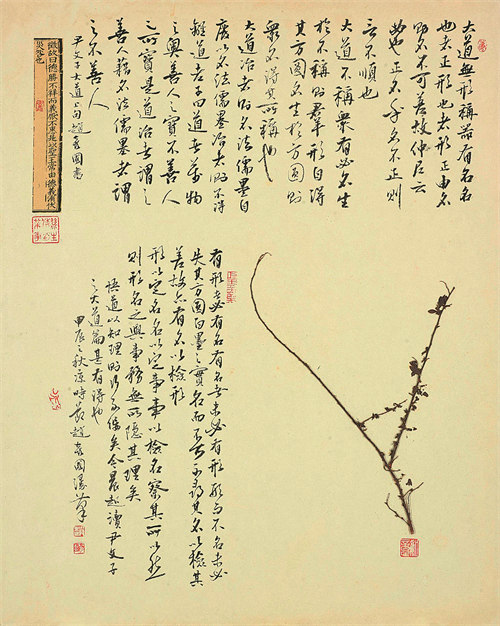 大道無形稱器有名名
也者正形也者形正由名
則名不可差故仲尼云
必也正名乎名不正則
言不順也
大道不稱衆有必名生
於不稱則群形自得
其方圓名生於方圓則
衆名得其所稱也
大道治者則名法儒墨自
廢以名法儒墨治者則不得
離道老子曰道者萬物
之奧善人之寶不善人
之所寶是道治者謂之
善人藉名法儒墨者謂
之不善人
尹文子大道上句趙國書
故曰德勝不祥而義厭不惠是以聖王常由德義消伏
災咎也
有形者必有名有名者未必有形形而不名未必
失其方圓白黑之實名而不可不尋名以檢其
差故亦有名以檢形
形以定名名以定事事以檢名察其所以然
則形名之與事物無所隱其理矣
悟道以知理明矣今晨起讀尹文子
之大道篇甚有得也
甲辰之秋涼時趙國漫筆